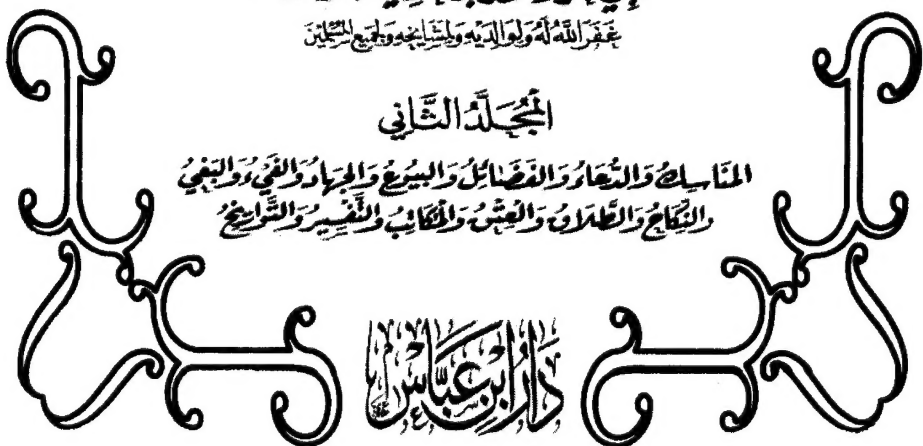 غَفَرَ اللَّهُ لَهُ وَلِوَالِدَيْهِ وَلِمَشَايِخِهِ وَلِجَمِيعِ الْمُسْلِمِينَ
الْمُجَلَّدُ الثَّانِي
المَنَاسِكُ وَالدُّعَاءُ وَالفَضَائِلُ وَالبُيُوعُ وَالجِهَادُ وَالفَيْءُ وَالبَغْيُ
وَالنِّكَاحُ وَالطَّلَاقُ وَالعِتْقُ وَالمُكَاتَبُ وَالتَّفْسِيرُ وَالتَّوَارِيخُ
دَارُ ابْنِ عَبَّاسٍ